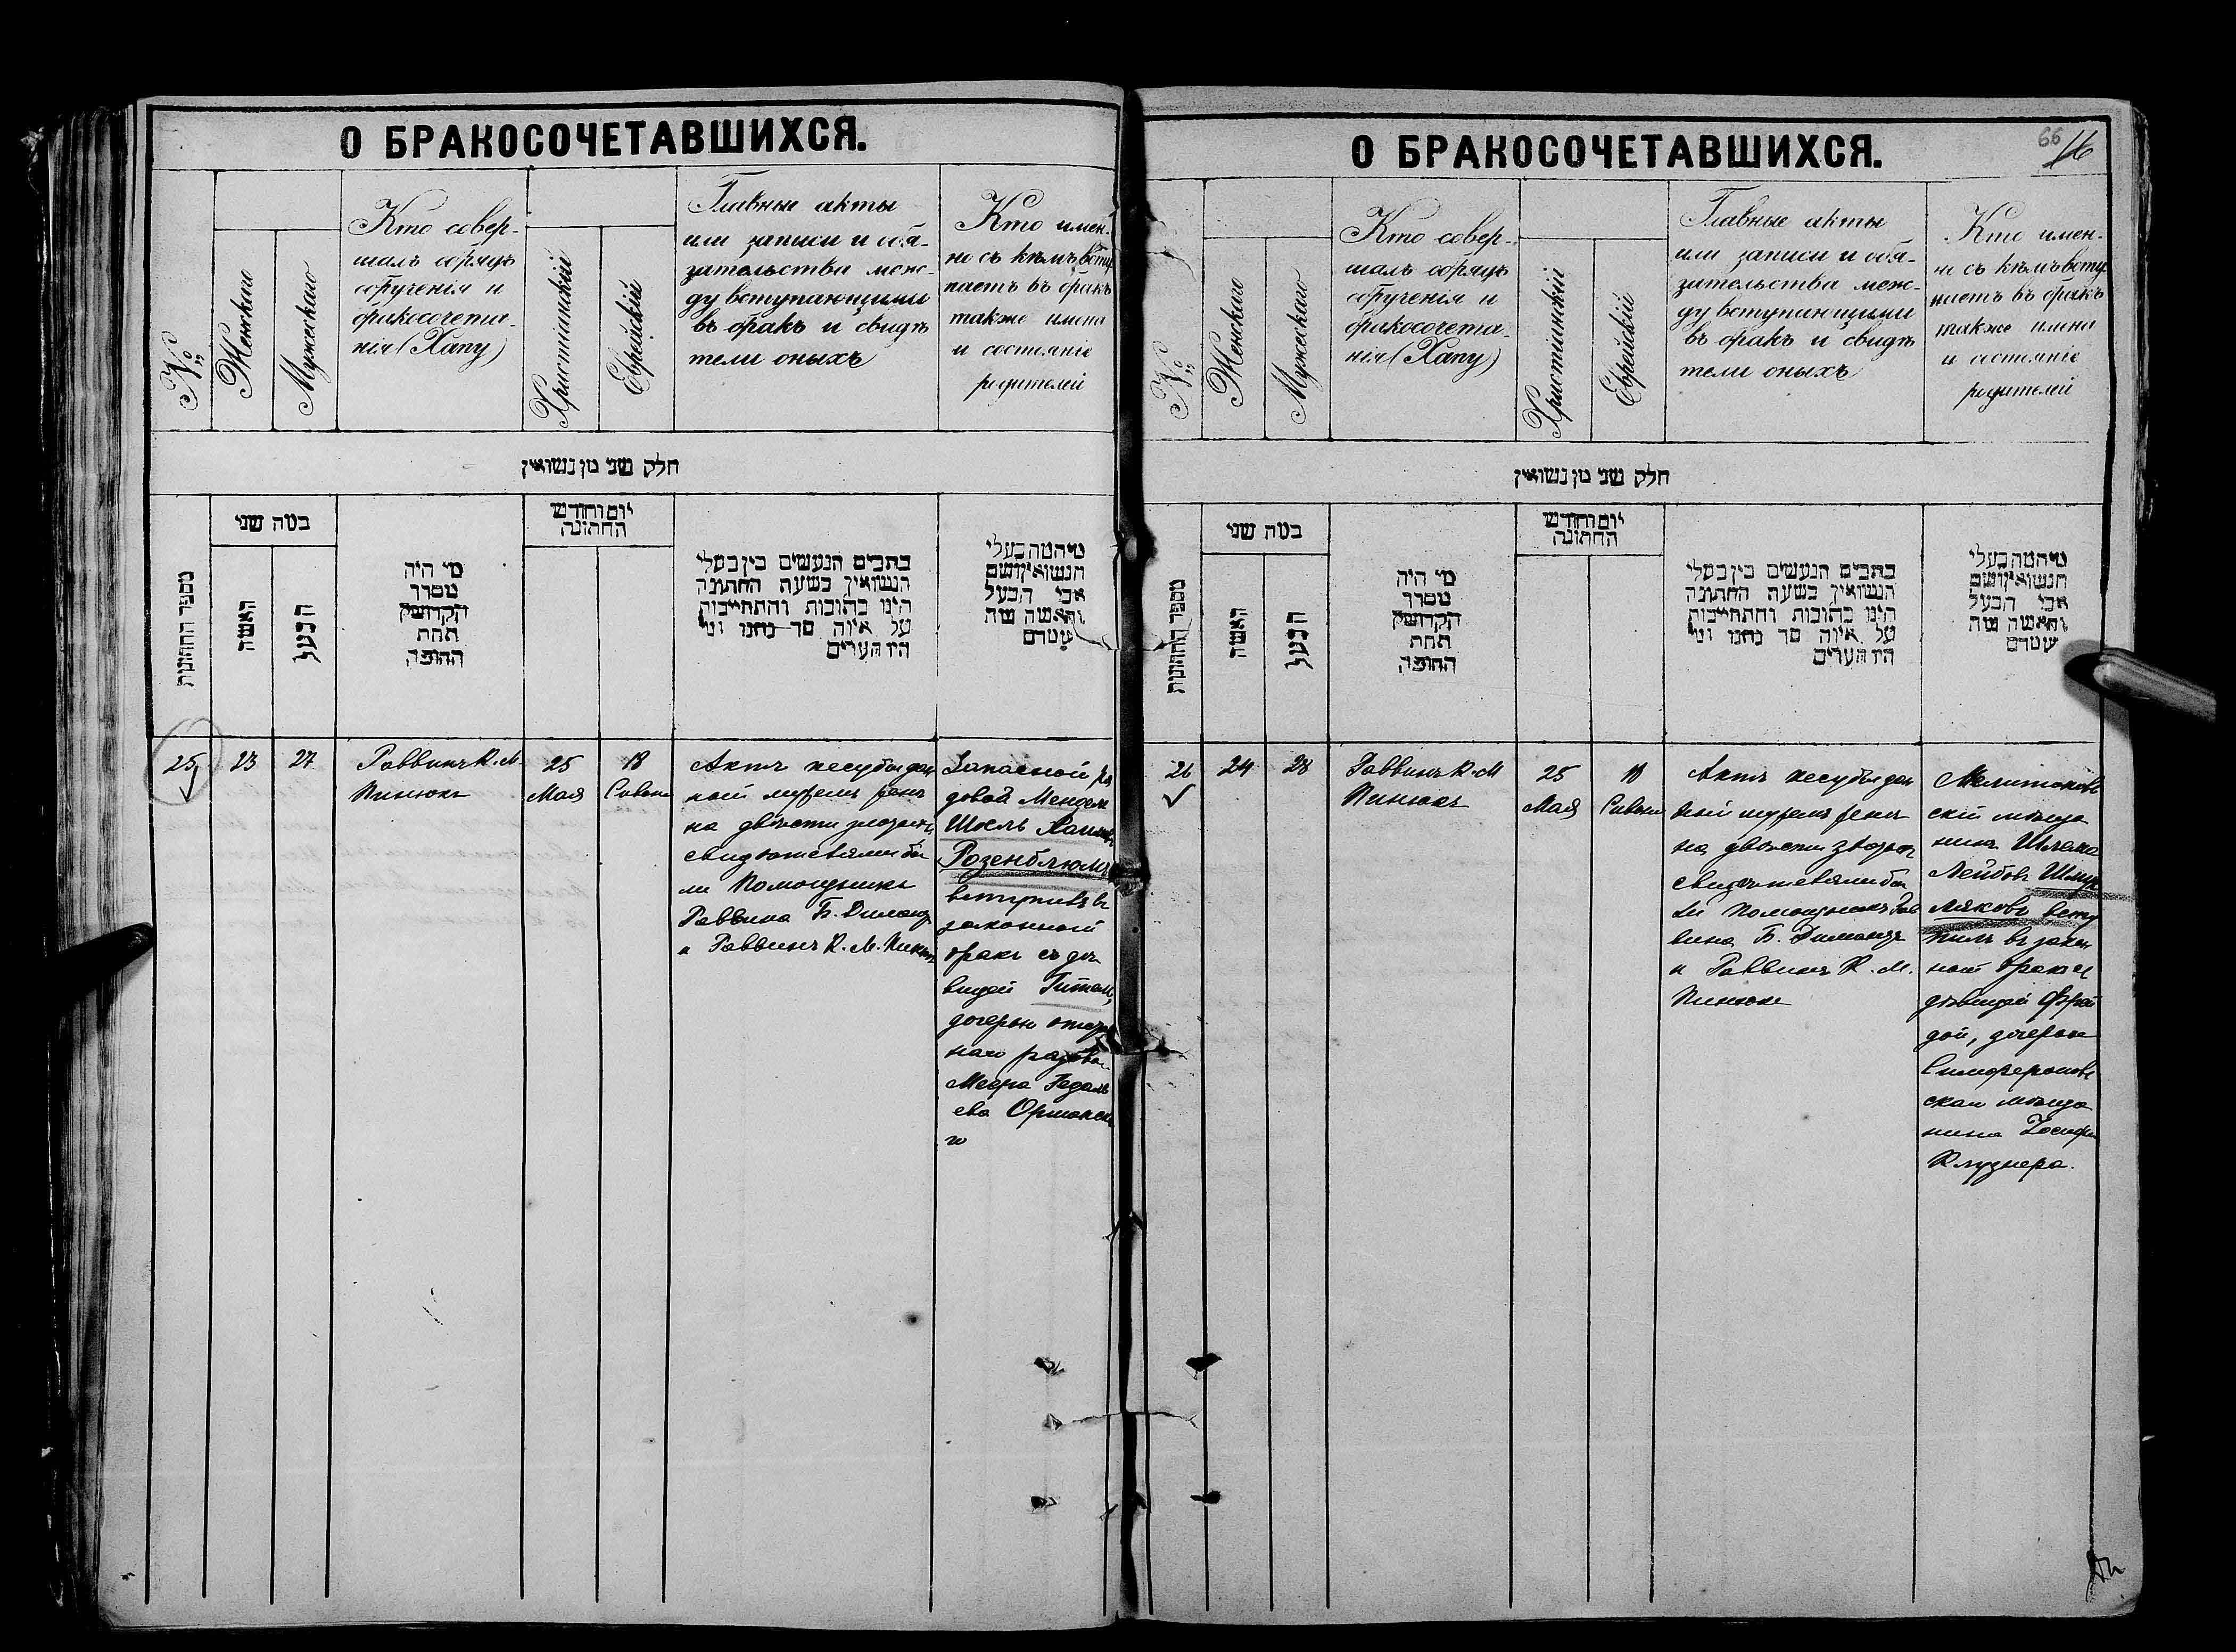 О БРАКОСОЧЕТАВШИХСЯ.
№
Женскаго
Мужескаго
Кто совер-
шалъ обрядъ
обрученія и
бракосочета-
нія (Хапу)
Христіанскій
Еврейскій
Главные акты
или записи и обя-
зательства меж-
ду вступающими
въ бракъ и свидѣ
тели оныхъ
Кто имен-
но съ кѣмъ всту
паетъ въ бракъ
также имена
и состояніе
родителей
חלק שני מן נשואין
מספר החתונות
כמה שני
האשה
הבעל
מי היה
מסדר
הקדושין
תחת
החופה
יום וחודש
החתונה
כתבים הנעשים בין בעלי
הנשואין בשעת החתונה
היינו כתובות והתחייבות
על איזה סך נתנו ומי
היו העדים
מי המה בעלי
הנשואין ושם
אבי הבעל
והאשה מה
שמם
25
23
27
Раввинъ К. М.
Пинюкъ
25
Мая
18
Сивана
Актъ кесубы дан
ный мужемъ женѣ
на двѣсти злотыхъ
свидѣтелями бы
ли Помощникъ
Раввина Б. Димандъ
и Раввинъ К. М. Пинюкъ
Запасной ря
довой Мендель
Шоель Хаимовъ
Розенблюмъ
вступилъ въ
законный
бракъ съ дѣ
вицей Гитлей,
дочерью отстав
наго рядова
Меера Гедаль
ева Оршанска
го
О БРАКОСОЧЕТАВШИХСЯ.
66
16
№
Женскаго
Мужескаго
Кто совер-
шалъ обрядъ
обрученія и
бракосочета-
нія (Хапу)
Христіанскій
Еврейскій
Главные акты
или записи и обя-
зательства меж-
ду вступающими
въ бракъ и свидѣ
тели оныхъ
Кто имен-
но съ кѣмъ всту
паетъ въ бракъ
также имена
и состояніе
родителей
חלק שני מן נשואין
מספר החתונות
כמה שני
האשה
הבעל
מי היה
מסדר
הקדושין
תחת
החופה
יום וחודש
החתונה
כתבים הנעשים בין בעלי
הנשואין בשעת החתונה
היינו כתובות והתחייבות
על איזה סך נתנו ומי
היו העדים
מי המה בעלי
הנשואין ושם
אבי הבעל
והאשה מה
שמם
26
24
28
Раввинъ К. М
Пинюкъ
25
Мая
18
Сивана
Актъ кесубы дан
ный мужемъ женѣ
на двѣсти злотыхъ
свидѣтелями бы
ли Помощникъ Рав
вина Б. Димандъ
и Раввинъ К. М.
Пинюкъ
Мелитопов
скій мѣща
нинъ Шлема
Лейбовъ Шмук
ляковъ всту
пилъ въ закон
ный бракъ съ
дѣвицей Фрей
дой, дочерью
Симферопов
скаго мѣща
нина Іосифа
Клузнера.